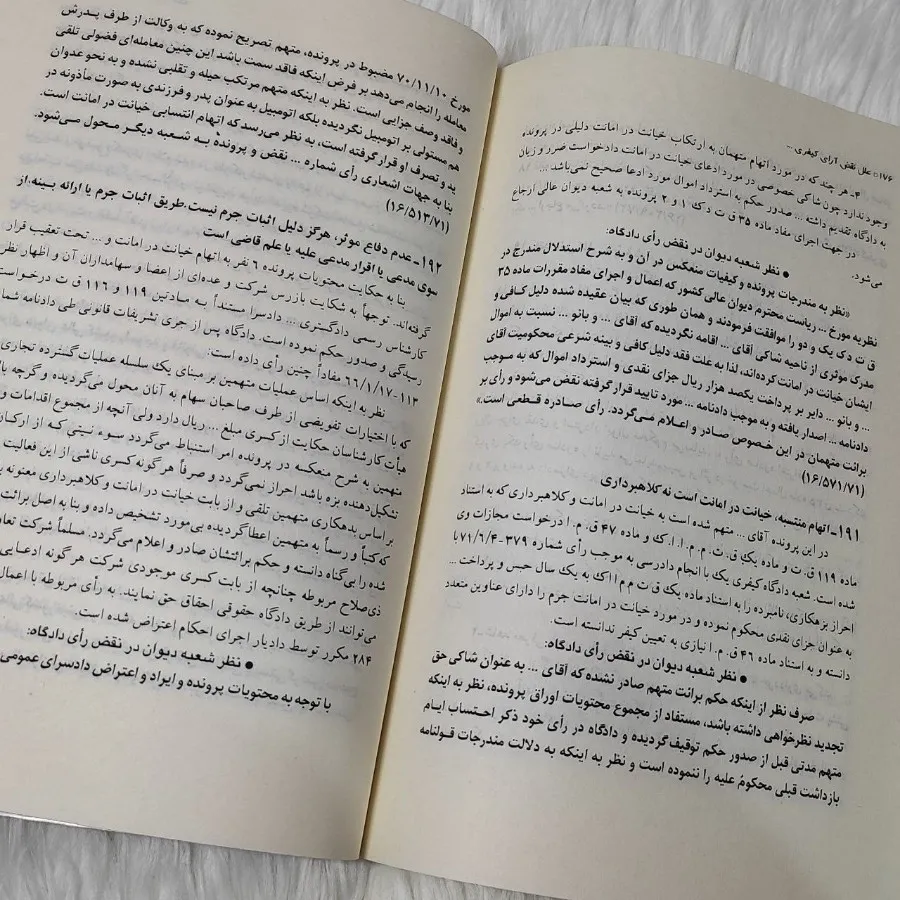 ۱۷۶ □ علل نقض آرای کیفری ...
۴ـ هر چند که در مورد اتهام متهمان به ارتکاب خیانت در امانت دلیلی در پرونده
وجود ندارد چون شاکی خصوصی در مورد ادعای خیانت در امانت دادخواست ضرر و زیان
به دادگاه تقدیم داشته ... صدور حکم به استرداد اموال مورد ادعا صحیح نمی‌باشد ...
در جهت اجرای مفاد ماده ۳۵ ق ت د ک ۱ و ۲ پرونده به شعبه دیوان عالی ارجاع
می شود.
● نظر شعبه دیوان در نقض رأی دادگاه:
«نظر به مندرجات پرونده و کیفیات منعکس در آن و به شرح استدلال مندرج در
نظریه مورخ ... ریاست محترم دیوان عالی کشور که اعمال و اجرای مفاد مقررات ماده ۳۵
ق ت د ک یک و دو را موافقت فرمودند و همان طوری که بیان عقیده شده دلیل کافی و
مدرک موثری از ناحیه شاکی آقای ... اقامه نگردیده که آقای ... و بانو ... نسبت به اموال
ایشان خیانت در امانت کرده‌اند، لذا به علت فقد دلیل کافی و بینه شرعی محکومیت آقای
... و بانو ... دایر بر پرداخت یکصد هزار ریال جزای نقدی و استرداد اموال که به موجب
دادنامه ... اصدار یافته و به موجب دادنامه ... مورد تایید قرار گرفته نقض می‌شود و رأی بر
برائت متهمان در این خصوص صادر و اعلام می‌گردد. رأی صادره قطعی است.»
(۱۶/۵۷۱/۷۱)
۱۹۱ـ اتهام منتسبه، خیانت در امانت است نه کلاهبرداری
در این پرونده آقای ... متهم شده است به خیانت در امانت و کلاهبرداری که به استناد
ماده ۱۱۹ ق. ت و ماده یک ق. ت. م. م. ا. ا. ک و ماده ۴۷ ق. م. ا درخواست مجازات وی
شده است. شعبه دادگاه کیفری یک با انجام دادرسی به موجب رأی شماره ۳۷۹-۷۱/۶/۴ با
احراز بزهکاری، نامبرده را به استناد ماده یک ق ت م م ا اک به یک سال حبس و پرداخت ...
به عنوان جزای نقدی محکوم نموده و در مورد خیانت در امانت جرم را دارای عناوین متعدد
دانسته و به استناد ماده ۴۶ ق. م. ا نیازی به تعیین کیفر ندانسته است.
● نظر شعبه دیوان در نقض رأی دادگاه:
صرف نظر از اینکه حکم برائت متهم صادر نشده که آقای ... به عنوان شاکی حق
تجدید نظرخواهی داشته باشد، مستفاد از مجموع محتویات اوراق پرونده، نظر به اینکه
متهم مدتی قبل از صدور حکم توقیف گردیده و دادگاه در رأی خود ذکر احتساب ایام
بازداشت قبلی محکوم علیه را ننموده است و نظر به اینکه به دلالت مندرجات قولنامه
مورخ ۷۰/۱۱/۱۰ مضبوط در پرونده، متهم تصریح نموده که به وکالت از طرف پدرش
معامله را انجام می‌دهد بر فرض اینکه فاقد سمت باشد این چنین معامله‌ای فضولی تلقی
و فاقد وصف جزایی است. نظر به اینکه متهم مرتکب حیله و تقلبی نشده و به نحو عدوان
هم مستولی بر اتومبیل نگردیده بلکه اتومبیل به عنوان پدر و فرزندی به صورت مأذونه در
ید و تصرف او قرار گرفته است، به نظر می‌رسد که اتهام انتسابی خیانت در امانت است.
بنا به جهات اشعاری رأی شماره ... نقض و پرونده به شعبه دیگر محول می‌شود.
(۱۶/۵۱۳/۷۱)
۱۹۲ـ عدم دفاع موثر، هرگز دلیل اثبات جرم نیست، طریق اثبات جرم یا ارائه بینه، از
سوی مدعی یا اقرار مدعی علیه یا علم قاضی است
بنا به حکایت محتویات پرونده ۶ نفر به اتهام خیانت در امانت و ... تحت تعقیب قرار
گرفته‌اند. توجهاً به شکایت بازرس شرکت و عده‌ای از اعضا و سهامداران آن و اظهار نظر
کارشناس رسمی دادگستری ... دادسرا مستنداً به مادتین ۱۱۹ و ۱۱۶ ق ت درخواست
رسیدگی و صدور حکم نموده است. دادگاه پس از جری تشریفات قانونی طی دادنامه شماره
۱۱۳-۶۶/۱/۱۷ مفاداً چنین رأی داده است:
نظر به اینکه اساس عملیات متهمین بر مبنای یک سلسله عملیات گسترده تجاری
که با اختیارات تفویضی از طرف صاحبان سهام به آنان محول می‌گردیده و گرچه با
هیأت کارشناسان حکایت از کسری مبلغ ... ریال دارد ولی آنچه از مجموع اقدامات و
متهمین به شرح منعکسه در پرونده امر استنباط می‌گردد سوء نیتی که از ارکان
تشکیل‌دهنده بزه باشد احراز نمی‌گردد و صرفاً هرگونه کسری ناشی از این فعالیت
بر اساس بدهکاری متهمین تلقی و از بابت خیانت در امانت و کلاهبرداری معنونه
که کتباً و رسماً به متهمین اعطا گردیده بی‌مورد تشخیص داده و بنا به اصل برائت
شده را بی‌گناه دانسته و حکم برائتشان صادر و اعلام می‌گردد. مسلماً شرکت
ذی‌صلاح مربوطه چنانچه از بابت کسری موجودی شرکت هر گونه ادعایی
می‌توانند از طریق دادگاه حقوقی احقاق حق نمایند. به رأی مربوطه با اعمال
۲۸۴ مکرر توسط دادیار اجرای احکام اعتراض شده است.
● نظر شعبه دیوان در نقض رأی دادگاه:
با توجه به محتویات پرونده و ایراد و اعتراض دادسرای عمومی